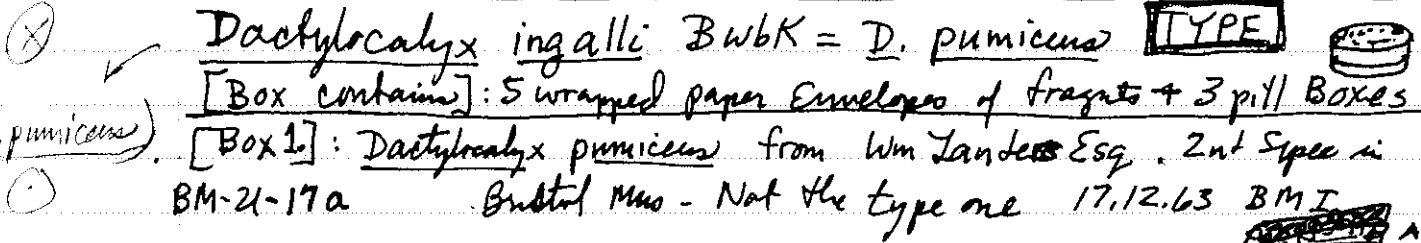 Dactylocalyx ingalli BwbK = D. pumiceus TYPE
[Box contains]: 5 wrapped paper Envelopes of fragnts + 3 pill Boxes
pumiceus) . [Box 1.]: Dactylocalyx pumiceus from Wm Esq. 2nd Spec in
BM-21-17a Bristol Mus - Not the type one 17.12.63 BMI